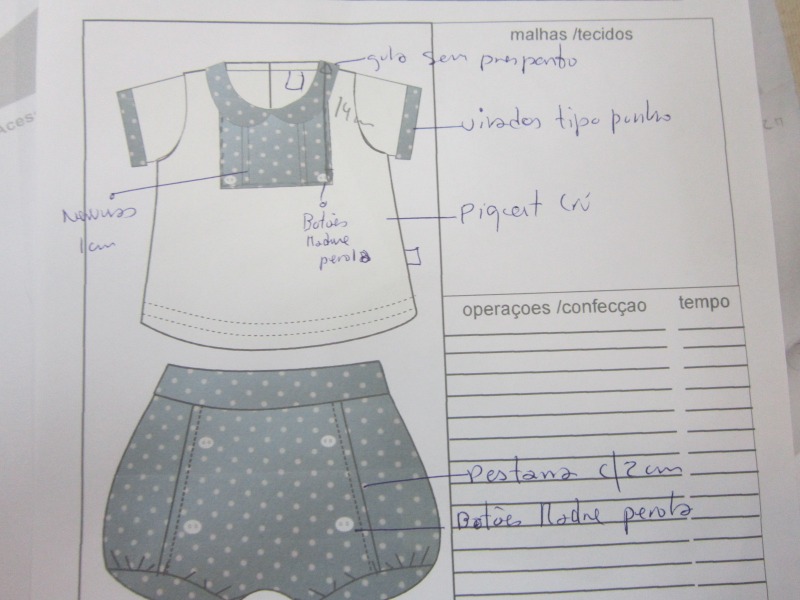 malhas /tecidos
gola sem presponto
14cm
virados tipo punho
Nervuras
1cm
Botões
Madre
perola
Piquert Crú
operaçoes /confecçao
tempo
Pestana c/2cm
Botões Madre perola